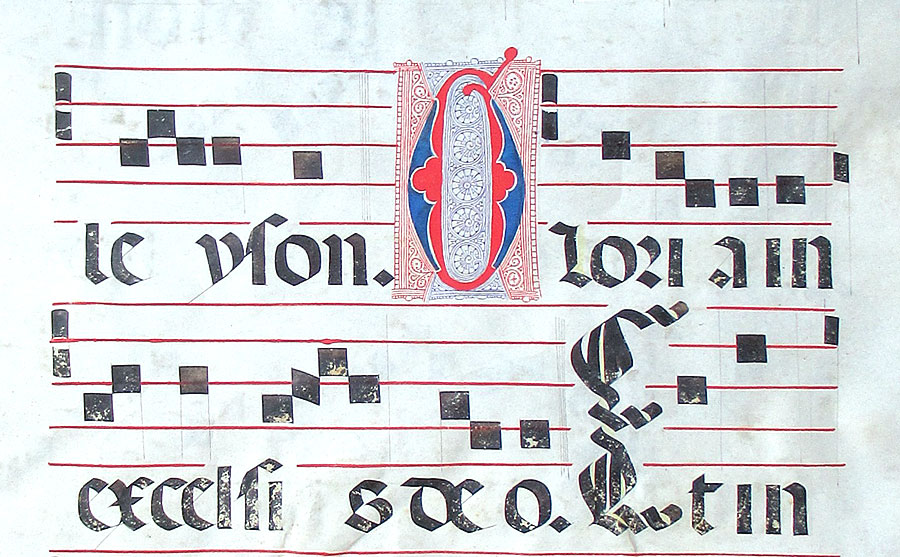 le yſon. Glori a in
excelſi s deo. Et in